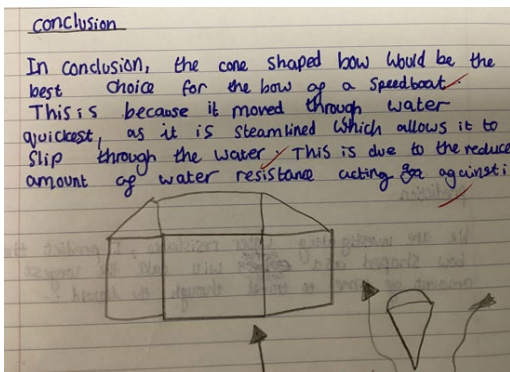 conclusion
In conclusion, the cone shaped bow would be the
best choice for the bow of a speedboat.
This is because it moved through water
quickest, as it is steamlined which allows it to
slip through the water. This is due to the reduce
amount of water resistance acting against i